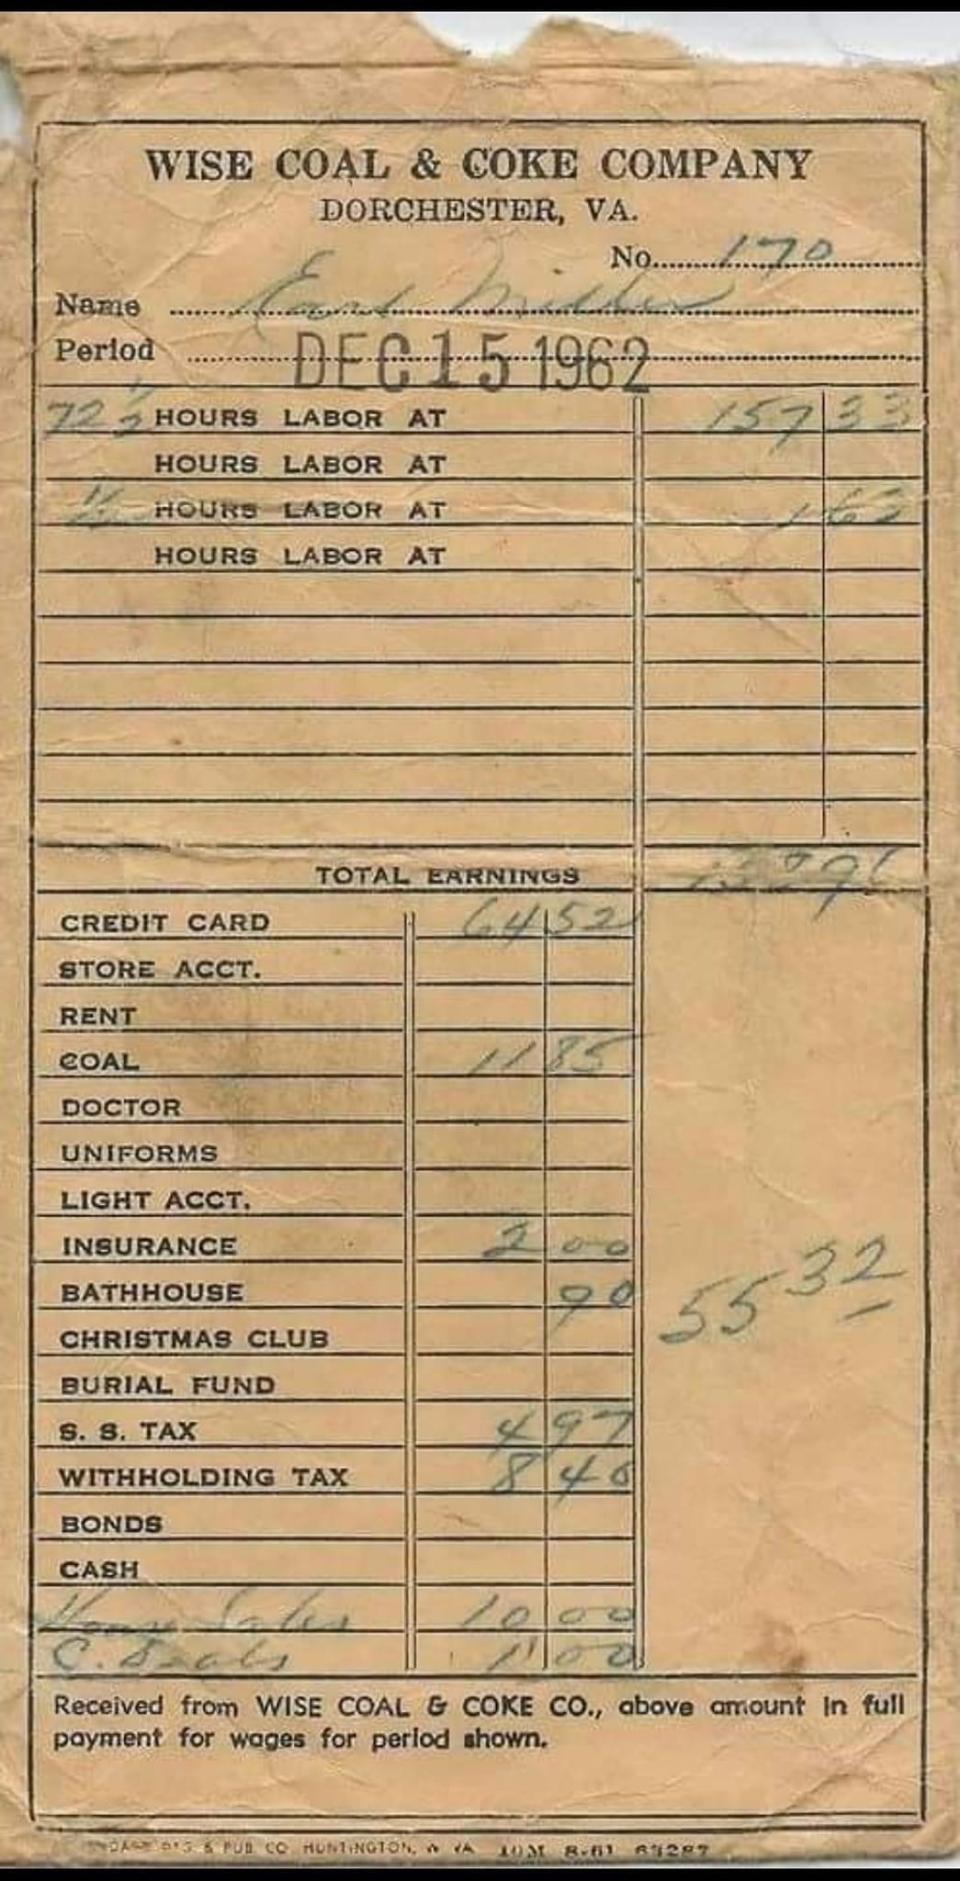 WISE COAL & COKE COMPANY
DORCHESTER, VA.
No. 170
Name Earl Miller
Period DEC 15 1962
72 1/2 HOURS LABOR AT 157 33
HOURS LABOR AT
1/2 HOURS LABOR AT 1 63
HOURS LABOR AT
TOTAL EARNINGS 158 96
CREDIT CARD 64 52
STORE ACCT.
RENT
COAL 11 85
DOCTOR
UNIFORMS
LIGHT ACCT.
INSURANCE 2 00
BATHHOUSE 90
55 32
CHRISTMAS CLUB
BURIAL FUND
S. S. TAX 4 97
WITHHOLDING TAX 8 40
BONDS
CASH
House Sales 10 00
C. Seals 1 00
Received from WISE COAL & COKE CO., above amount in full
payment for wages for period shown.
& PUB CO HUNTINGTON, W VA 10M 8-61